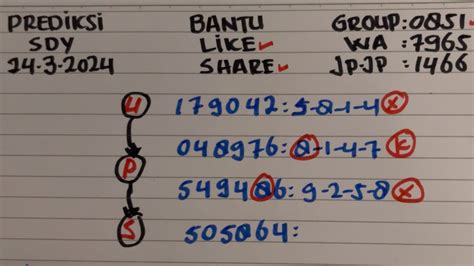 PREDIKSI BANTU GROUP:0851✓
SDY LIKE✓ WA :7965
14-3-2024 SHARE✓ JP-JP :1466
U 179042:5-8-1-4 X
P 048976:8-1-4-7 K
S 549486:9-2-5-8 X
505864: